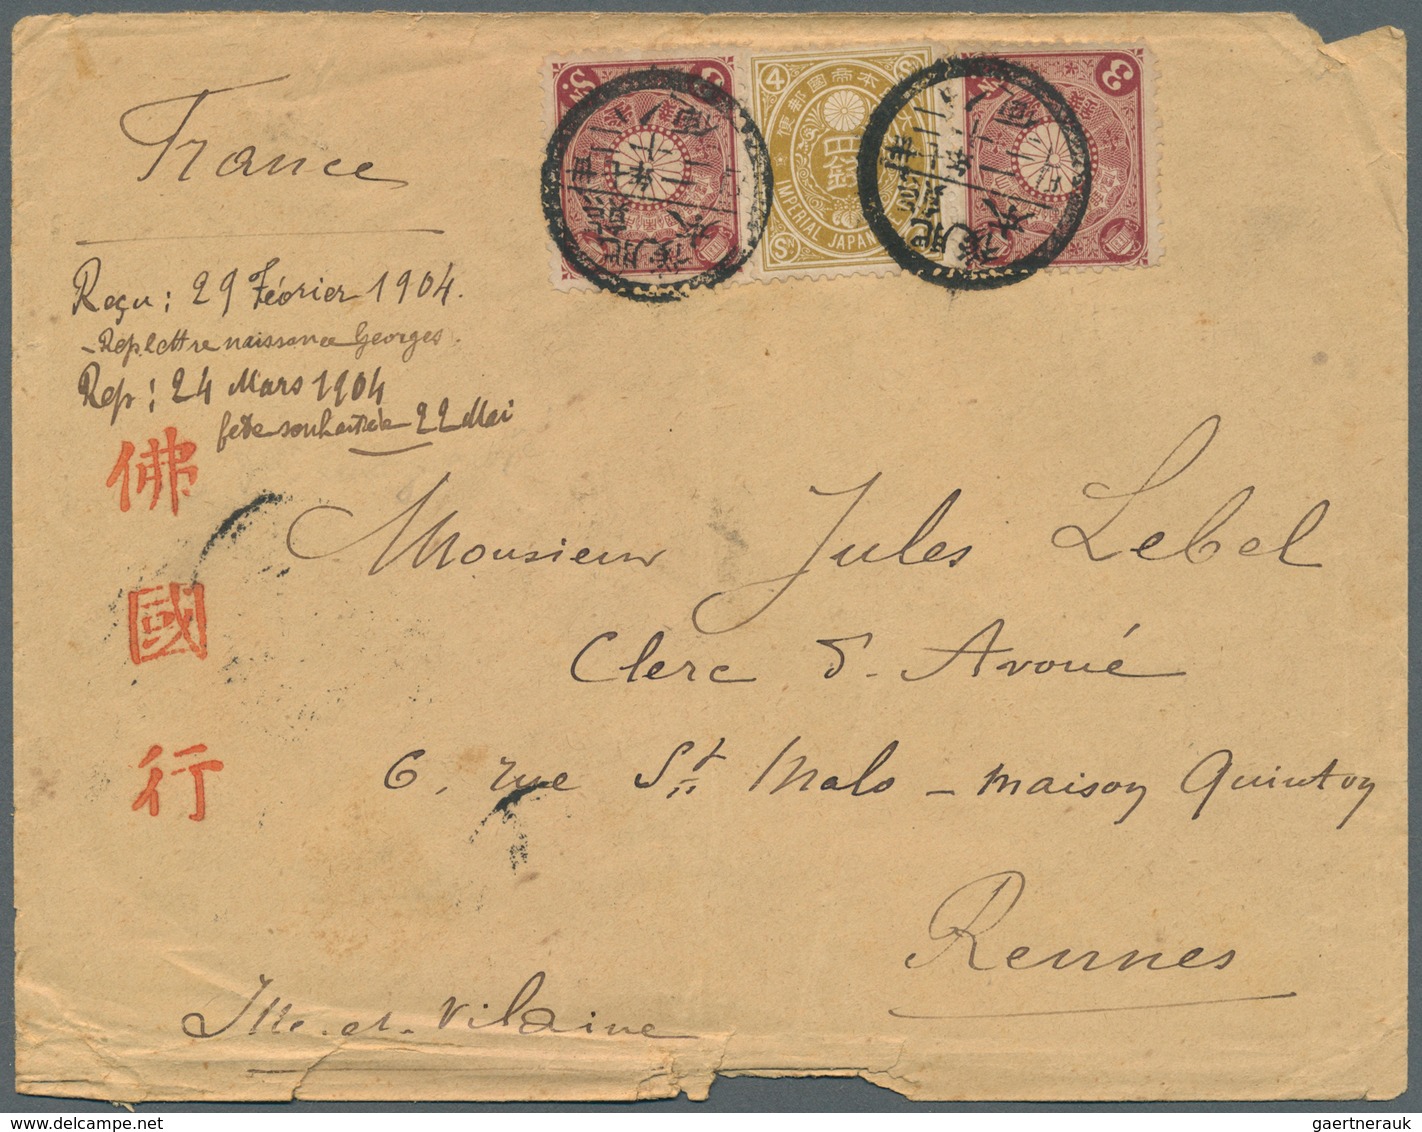 France
Reçu : 29 Février 1904.
- Rep. lettre naissance Georges.
Rep : 24 Mars 1904
fête souhaitée 22 Mai
佛
國
行
Monsieur Jules Lebel
Clerc d'Avoué
6, rue St Malo - maison Quinton
Rennes
Ille-et-Vilaine
3
4
SN
大日本帝國郵便
四銭
IMPERIAL JAPAN
SN
3
肥後
gaertnerauk